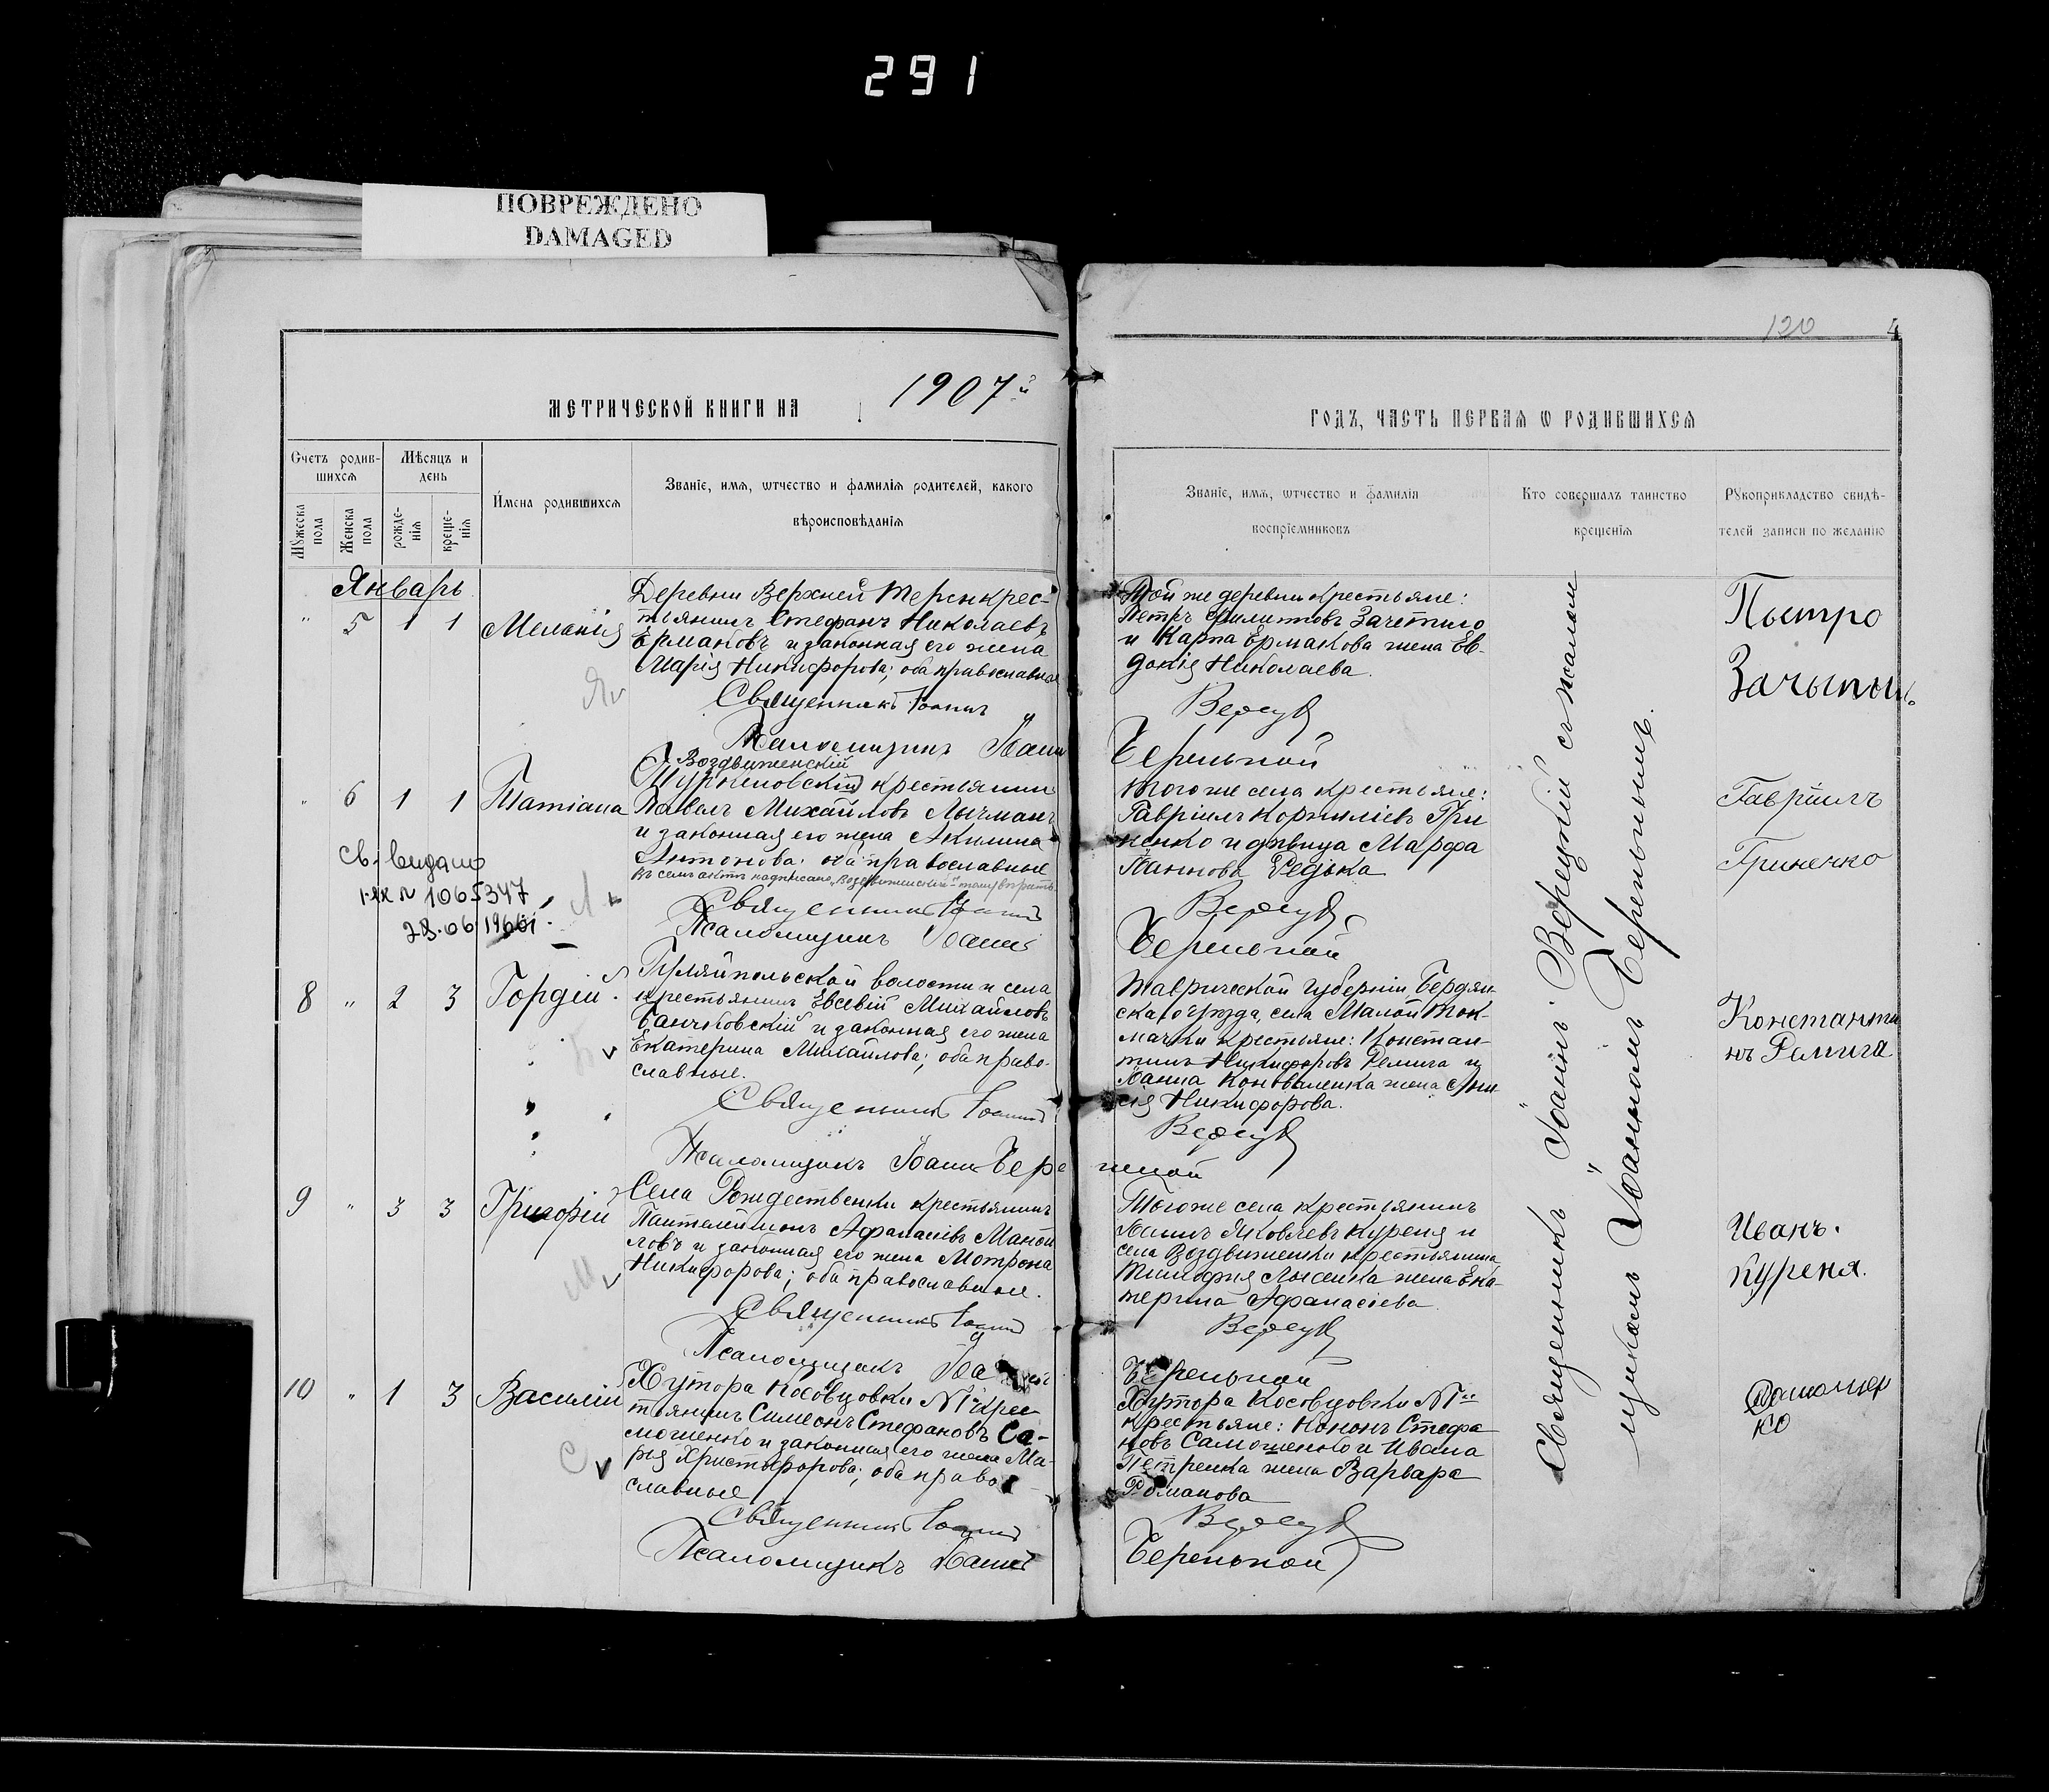 291
ПОВРЕЖДЕНО
DAMAGED
120
4
МЕТРИЧЕСКОЙ КНИГИ НА 1907й
ГОДЪ, ЧАСТЬ ПЕРВАЯ Ѡ РОДИВШИХСЯ
Счетъ родив-
шихся
Мѣсяцъ и
день
Мужеска
пола
Женска
пола
рожде-
нія
креще-
нія
Имена родившихся
Званіе, имя, ѡтчество и фамилія родителей, какого
вѣроисповѣданія
Званіе, имя, ѡтчество и фамилія
воспріемниковъ
Кто совершалъ таинство
крещенія
Рукоприкладство свидѣ-
телей записи по желанію
Январь
" 5 1 1 Меланія
Деревни Верхней Терси крес-
тьянинъ Стефанъ Николаевъ
Ермаковъ и законная его жена
Марія Никифорова; оба православные
Священникъ Іоаннъ
Псаломщикъ Іоаннъ
Той же деревни крестьяне:
Петръ Филипповъ Зачепило
и Карпа Ермакова жена Ев-
докія Николаева.
Береньной
Пыстро
Зачыпыл.
" 6 1 1 Татіана
Воздвиженскій
крестьянинъ
Павелъ Михайловъ Лычманъ
и законная его жена Акилина
Антонова; оба православные
Въ семъ актѣ надписано „Воздвиженскій"
Священникъ Іоаннъ
Псаломщикъ Іоаннъ
Того же села крестьяне:
Гавріилъ Корниліевъ Гри
ненко и дѣвица Марфа
Іоаннова Редька
Береньной
Гавріилъ
Гриненко
Св-во видано
1-ЯК № 1065347
28.06.1966
8 " 2 3 Гордій
Гуляйпольской волости и села
крестьянинъ Евсевій Михайловъ
Банчковскій и законная его жена
Екатерина Михайлова; оба право-
славные.
Священникъ Іоаннъ
Псаломщикъ Іоаннъ Бере
ньной
Таврической губерніи Бердян-
скаго уѣзда, села Малой Ток-
мачки крестьяне: Констан-
тинъ Никифоровъ Ремига и
Іоанна Коноваленка жена Ани
сія Никифорова.
Константи
нъ Ремига
9 " 3 3 Григорій
Села Рождественки крестьянинъ
Пантелеимонъ Афанасіевъ Маной
ловъ и законная его жена Мотрона
Никифорова; оба православные.
Священникъ Іоаннъ
Псаломщикъ
Того же села крестьянинъ
Іоаннъ Яковлевъ Куреня и
села Воздвиженки крестьянина
Тимофея Лысенка жена Ека-
терина Афанасіева
Береньной
Иванъ.
Куреня.
10 " 1 3 Василій
Хутора Косовцовки №1й крес
тьянинъ Симеонъ Стефановъ Са-
мошенко и законная его жена Ма-
рія Христофорова; оба право
славные
Священникъ Іоаннъ
Псаломщикъ Іоаннъ
Хутора Косовцовки №1й
крестьяне: Кононъ Стефа
новъ Самошенко и Ивана
Петренка жена Варвара
Романова
Береньной
Священникъ Іоаннъ Верецкій съ псалом
щикомъ Іоанномъ Береньнымъ.